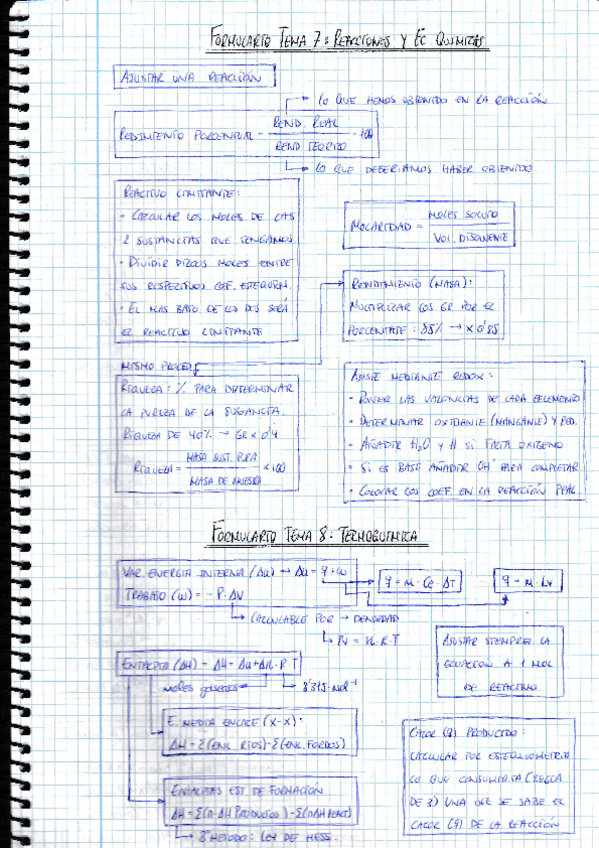 FORMULARIO TEMA 7: REACCIONES Y EC. QUIMICAS
AJUSTAR UNA REACCIÓN
LO QUE HEMOS OBTENIDO EN LA REACCIÓN
REDIMIENTO PORCENTUAL = REND. REAL / REND TEORICO · 100
LO QUE DEBERIAMOS HABER OBTENIDO
REACTIVO LIMITANTE:
· CALCULAR LOS MOLES DE LAS
2 SUSTANCIAS QUE TENGAMOS
· DIVIDIR DICHOS MOLES ENTRE
SUS RESPECTIVOS COEF. ESTEQUIOM.
· EL MAS BAJO DE LOS DOS SERÁ
EL REACTIVO LIMITANTE
MOLARIDAD = MOLES SOLUTO / VOL. DISOLVENTE
RENDIMIENTO (MASA):
MULTIPLICAR LOS GR POR EL
PORCENTAJE: 85% → x 0'85
MISMO PROCED.
RIQUEZA: % PARA DETERMINAR
LA PUREZA DE LA SUSTANCIA.
RIQUEZA DE 40% → GR x 0'4
RIQUEZA = MASA SUST. PURA / MASA DE MUESTRA x 100
AJUSTE MEDIANTE REDOX:
· PONER LAS VALENCIAS DE CADA ELEMENTO
· DETERMINAR OXIDANTE (MANGANESO) Y RED.
· AÑADIR H₂O Y H SI FALTA OXIGENO
· SI ES BASE AÑADIR OH PARA COMPLETAR
· COLOCAR LOS COEF. EN LA REACCIÓN PPAL.
FORMULARIO TEMA 8: TERMOQUIMICA
VAR. ENERGIA INTERNA (ΔU) → ΔU = q + w
TRABAJO (W) = -P·ΔV
q = m · Ce · ΔT
q = m · Lv
CALCULABLE POR → DENSIDAD
PV = n·R·T
ENTALPIA (ΔH) → ΔH = ΔU + Δn·R·T
MOLES GASEOSOS
AJUSTAR SIEMPRE LA
ECUACIÓN A 1 MOL
DE REACTIVO
E. MEDIA ENLACE (X-X):
ΔH = Σ(ENL. ROTOS) - Σ(ENL. FORDOS)
ENTALPIAS EST DE FORMACIÓN
ΔH = Σ(n·ΔH PRODUCTOS) - Σ(nΔH REACT)
3º METODO: LEY DE HESS.
CALOR (q) PRODUCIDO:
CALCULAR POR ESTEQUIOMETRIA
LO QUE CONSUMIRIA (REGLA
DE 3) UNA VEZ SE SABE EL
CALOR (q) DE LA REACCIÓN